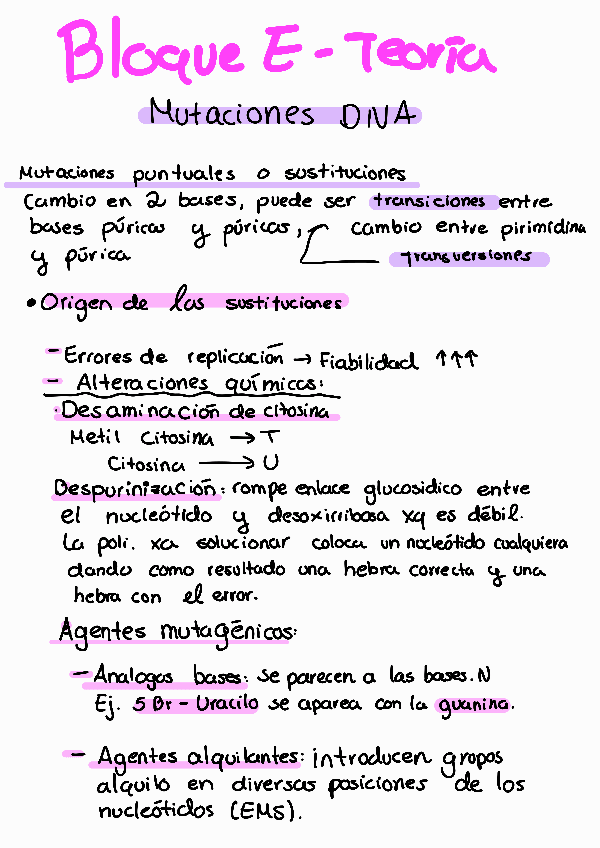 Bloque E - Teoría
Mutaciones DNA
Mutaciones puntuales o sustituciones
Cambio en 2 bases, puede ser transiciones entre
bases púricas y púricas, cambio entre pirimidina
y púrica transversiones
• Origen de las sustituciones
- Errores de replicación → Fiabilidad ↑↑↑
- Alteraciones químicas:
· Desaminación de citosina
Metil Citosina → T
Citosina → U
Despurinización: rompe enlace glucosidico entre
el nucleótido y desoxirribosa xq es débil.
La poli. xa solucionar coloca un nucleótido cualquiera
dando como resultado una hebra correcta y una
hebra con el error.
Agentes mutagénicos:
- Analogos bases: se parecen a las bases. N
Ej. 5 Br - Uracilo se aparea con la guanina.
- Agentes alquilantes: introducen gropos
alquilo en diversas posiciones de los
nucleótidos (EMS).